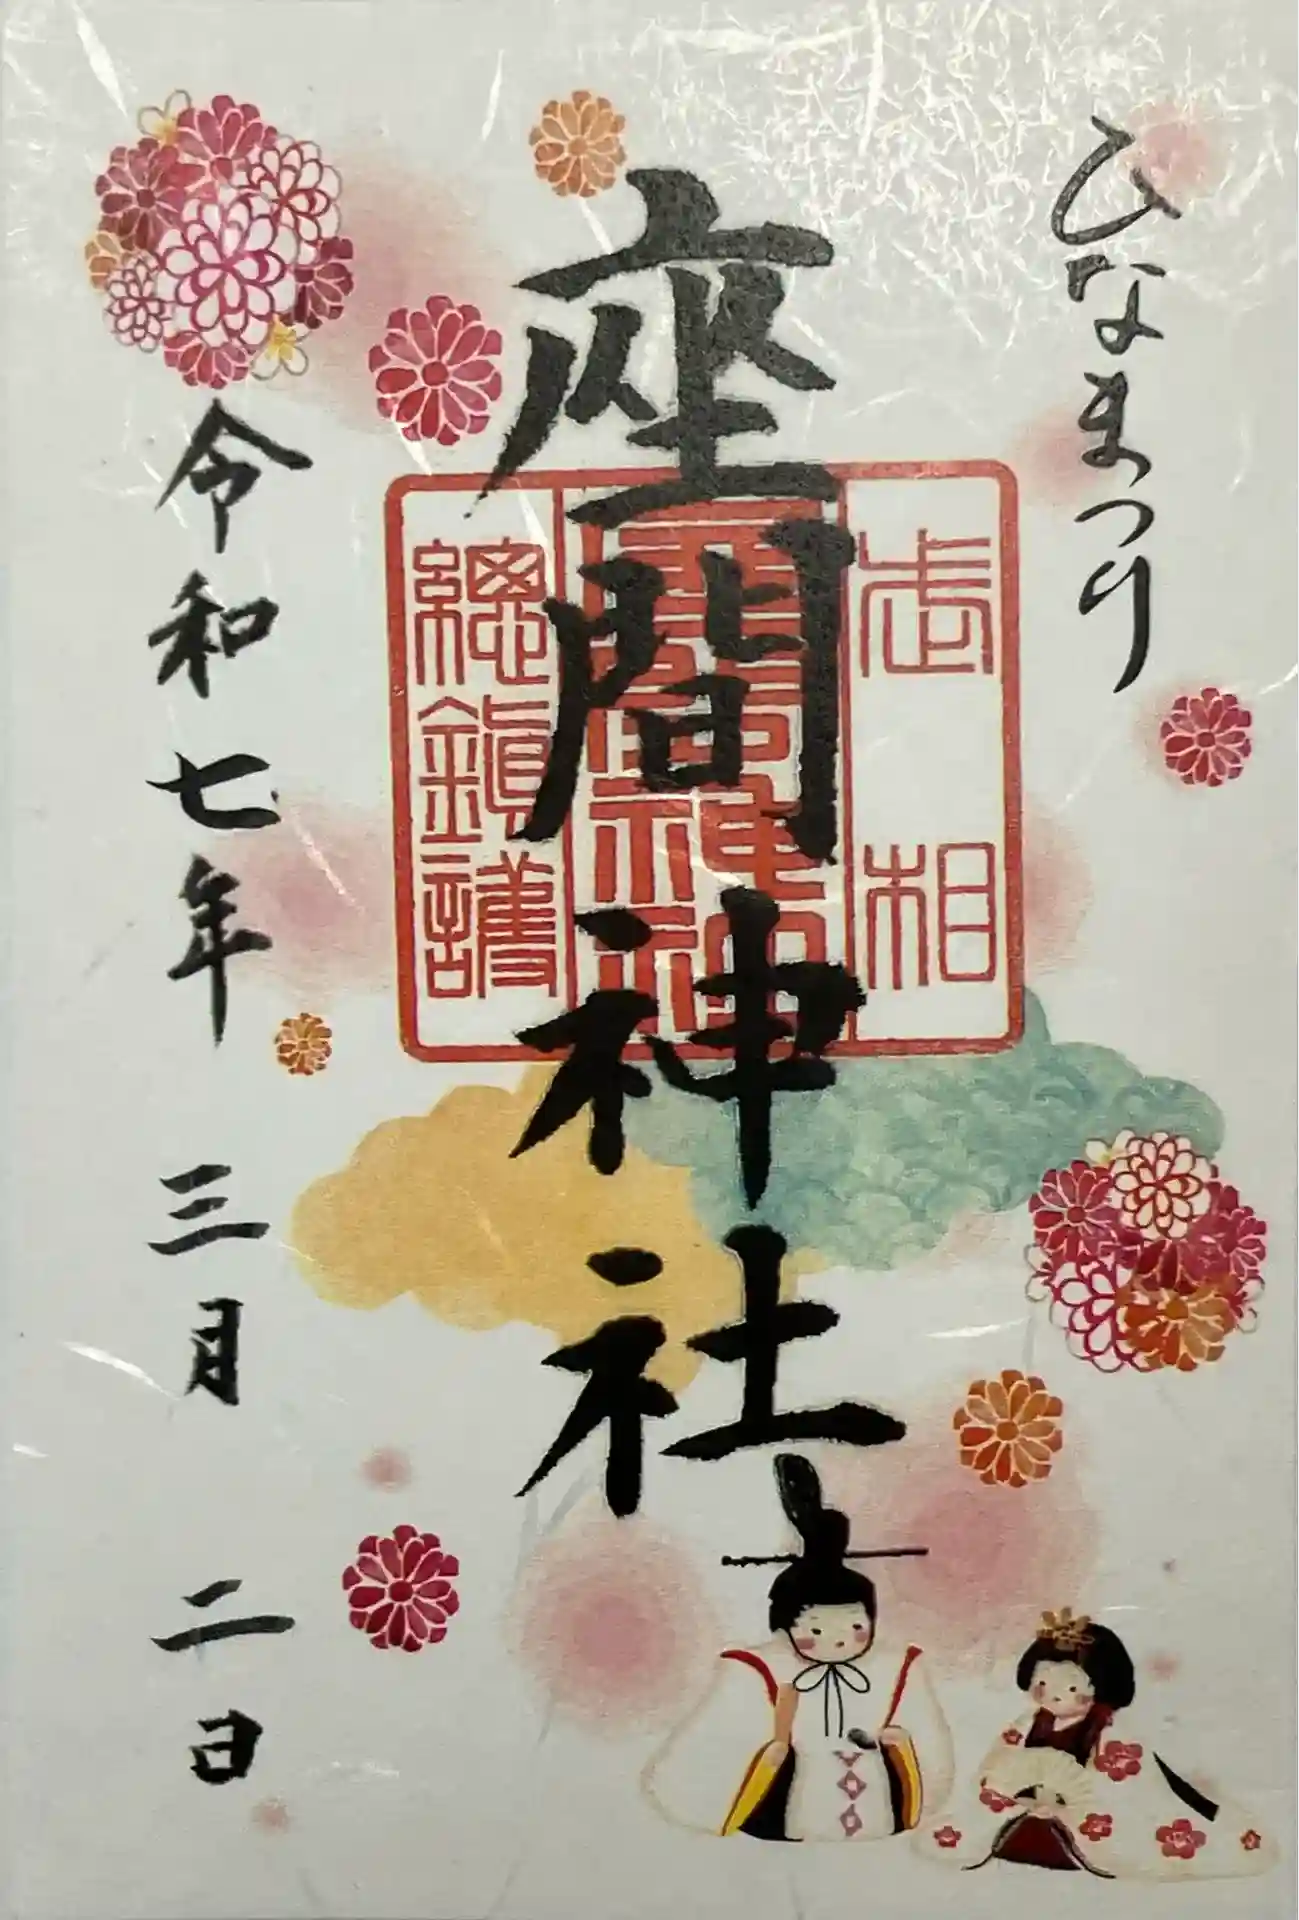 ひなまつり
武相
座間神社
總鎮護
令和七年 三月 二日